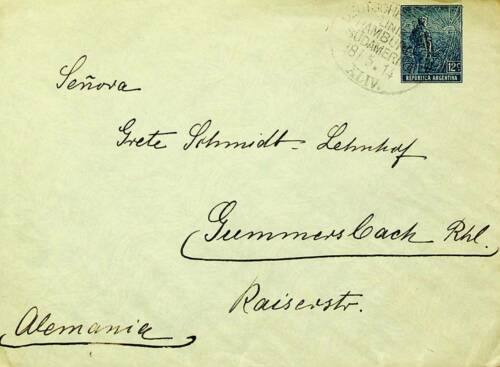 LINIE
HAMBURG
SÜDAMERIKA
18/5.14
XLIV.
12C
REPUBLICA ARGENTINA
Señora
Grete Schmidt-Lehnhof
Gummersbach Rhl.
Kaiserstr.
Alemania